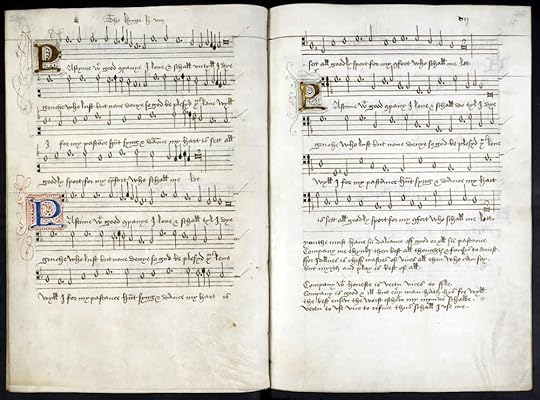 The kynge h viij
Pastyme wt good companye I love & schall untyll I dye
gruche who lust but none denye so god be plesyd yus leve wyll
I for my pastance hunt syng & dance my hart is sett all
goodly sport for my cõfort who schall me let
Pastime wt good companye I love & schall tyl I dye
gruche who lust but none denye so god be plesyd yus leve
wyll I for my pastance hunt syng & dance my hart is
sett all goodly sport for my cõfort who schall me let
Pastime wt good companye I love & schall tyl I dye
gruche who lust but none denye so god be plesyd yus leve
wyll I for my pastance hunt syng & dance my hart
is sett all goodly sport for my cõfort who schall me lett.
youthe must have sũ daliance off good or yll sũ pastance
Company me thynks then best all thoughts & fansies to deiest
ffor Idillnes is cheff mastres of vices all then who can say
but myrth and play is best of all.
Company wt honeste is vertu vices to ffle
Company is good & ill but every man hath hys fre wyll
the best ensew the worst eschew my mynde schalbe
vertu to use vice to refuse thus schall I use me.